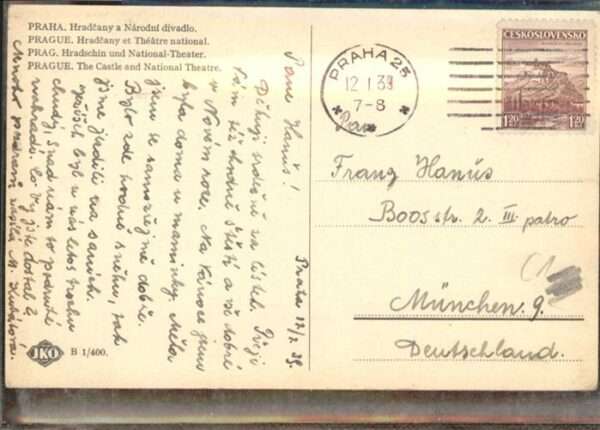 PRAHA. Hradčany a Národní divadlo.
PRAGUE. Hradčany et Théâtre national.
PRAG. Hradschin und National-Theater.
PRAGUE. The Castle and National Theatre.
Praha 12/I 39.
Pane Hanuš!
Děkuji srdečně za lístek. Přeji
Vám též hodně štěstí a vše dobré
v Novém roce. Na Vánoce jsem
byla doma u maminky. Měla
jsem se samozřejmě dobře.
Bylo zde hodně sněhu, tak
jsme jezdili na saních.
byl u nás letos trochu
chudý. Snad nám to
nahradí. Co Vy jste dostal?
Mnoho pozdravů zasílá M.
JKO
B 1/400.
PRAHA 25
12 I 39
7-8
ČESKOSLOVENSKO
1.20 1.20
Franz Hanuš
Boosstr. 2. III. patro
München. 9.
Deutschland.